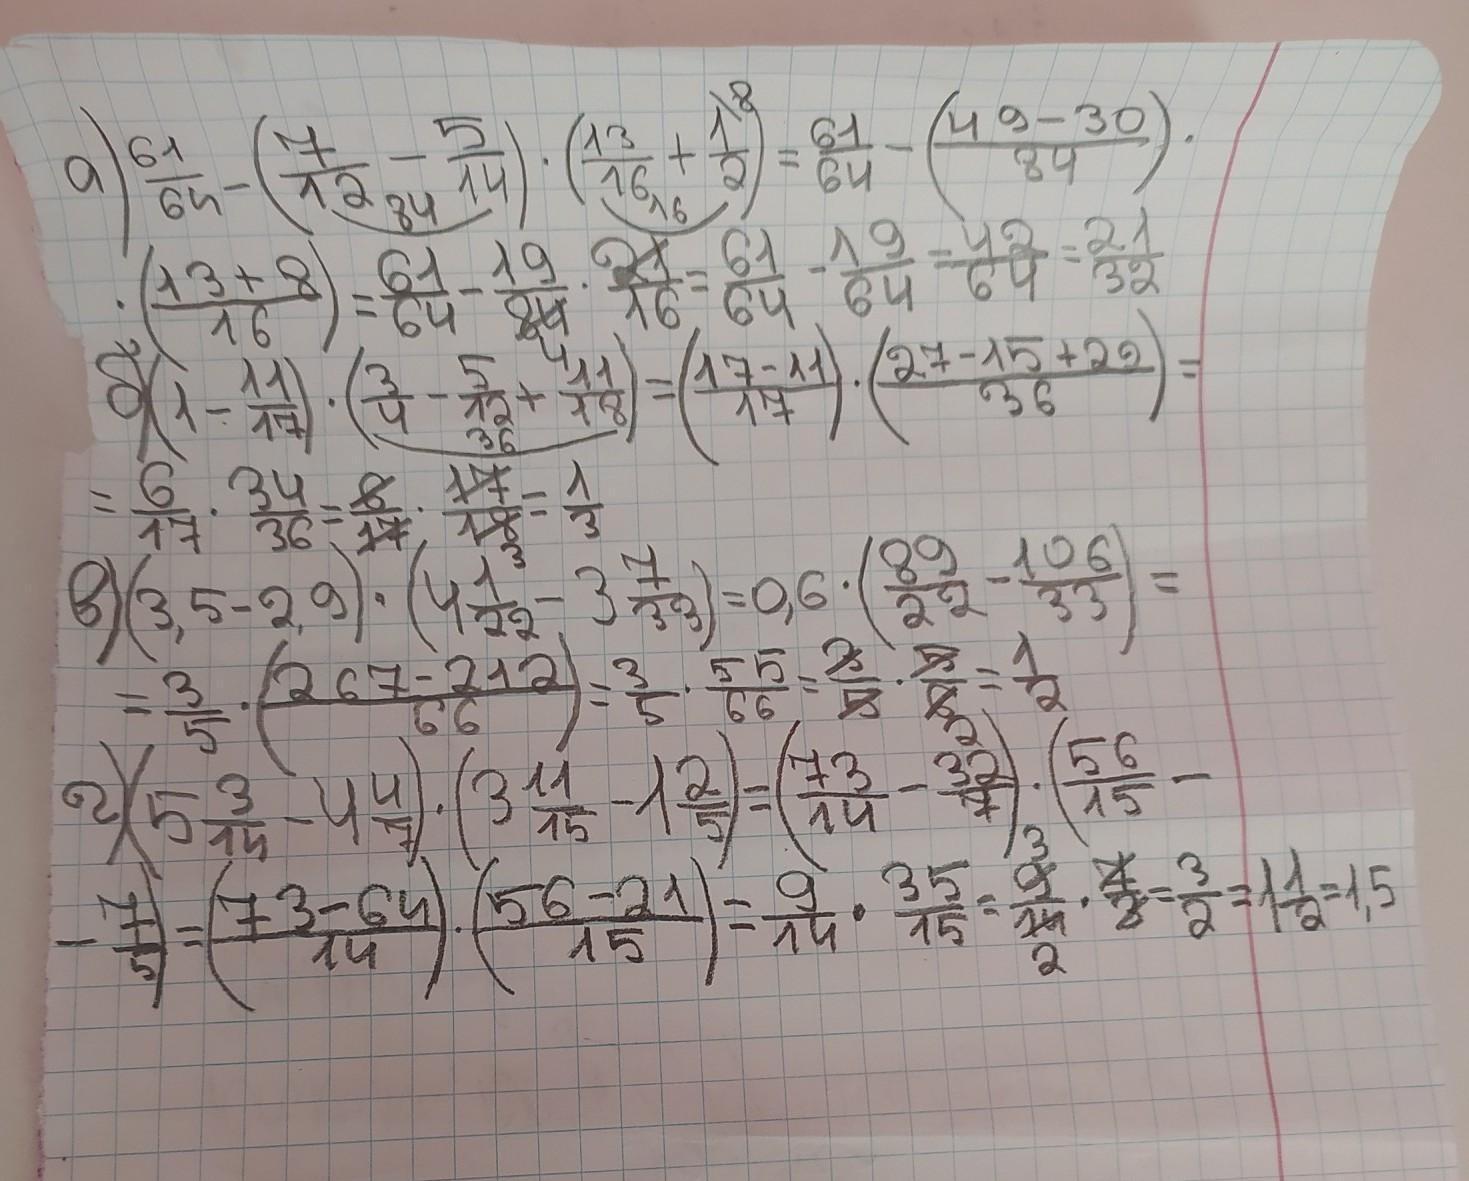 а) 61/64 - (7/12 - 5/14) · (13/16 + 1/2) = 61/64 - (49-30/84) ·
84 16 8
· (13+8/16) = 61/64 - 19/84 · 21/16 = 61/64 - 19/64 = 42/64 = 21/32
б) (1 - 11/17) · (3/4 - 5/12 + 11/18) = (17-11/17) · (27-15+22/36) =
36
= 6/17 · 34/36 = 6/17 · 17/18 = 1/3
3
в) (3,5-2,9) · (4 1/22 - 3 7/33) = 0,6 · (89/22 - 106/33) =
= 3/5 · (267-212/66) = 3/5 · 55/66 = 3/5 · 5/6 = 1/2
2
г) (5 3/14 - 4 4/7) · (3 11/15 - 1 2/5) = (73/14 - 32/7) · (56/15 -
- 7/5) = (73-64/14) · (56-21/15) = 9/14 · 35/15 = 9/14 · 7/3 = 3/2 = 1 1/2 = 1,5
3
2